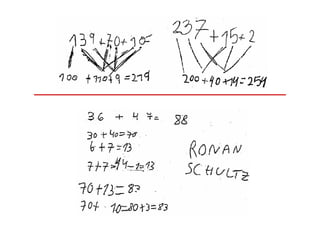 139+70+10=
100 +110+9=219
237+15+2
200+40+14=254
36 + 47= 88
30+40=70
6+7=13
70+13=83
70+ 10=80+3=83
RONAN
SCHULTZ